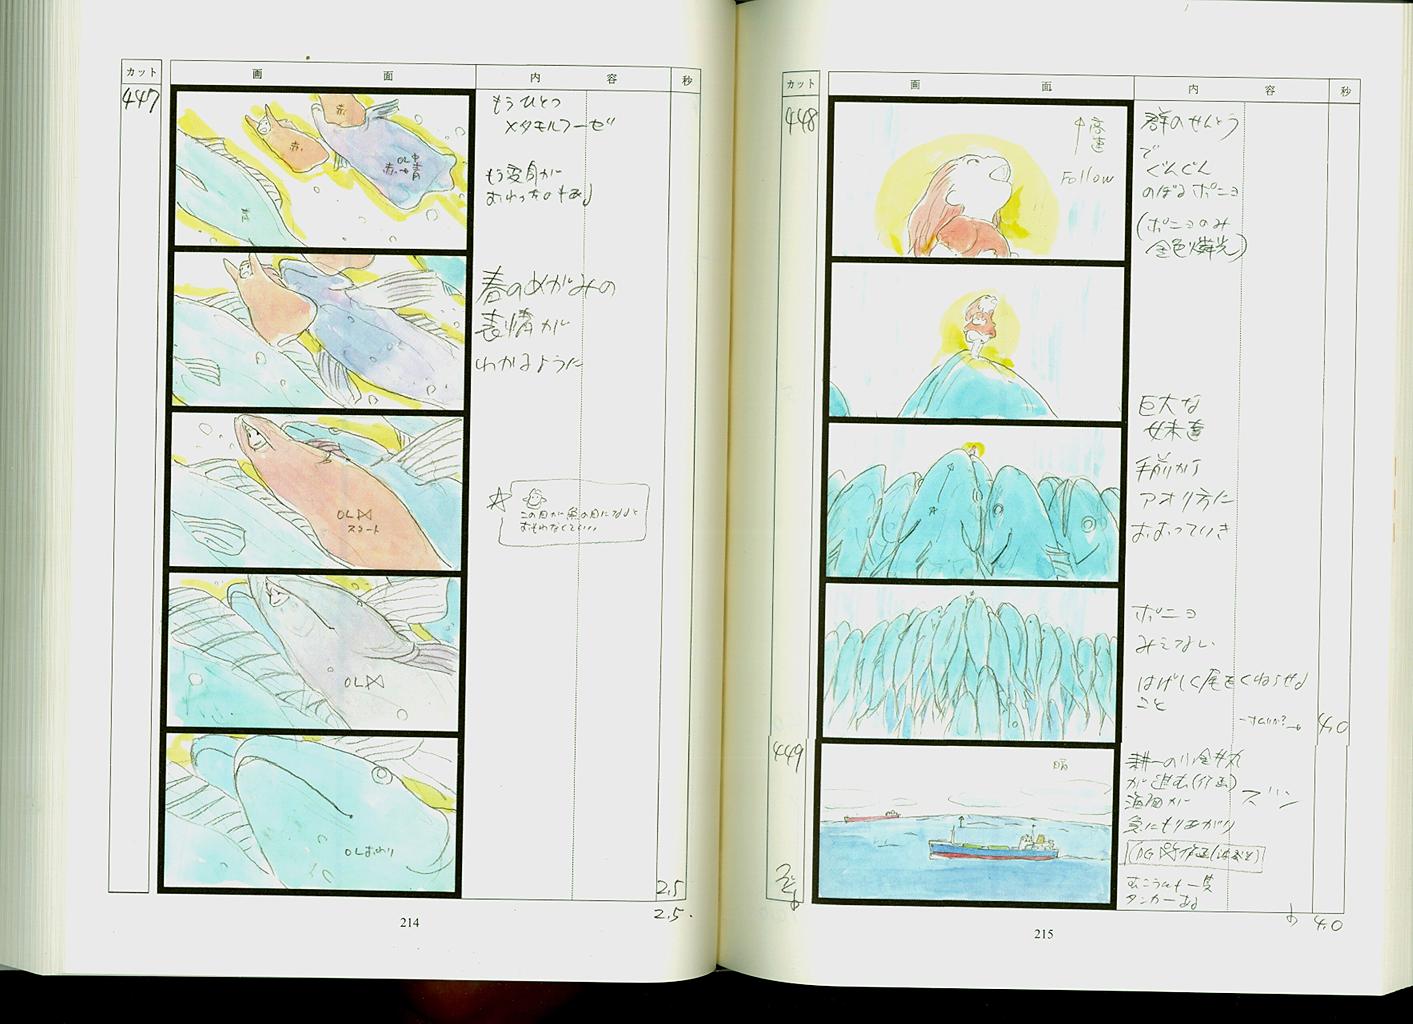 カット
画 面
内 容
秒
447
もうひとつ
メタモルフーゼ
もう変身が
赤
赤
青
OL
春のめがみの
表情が
わかるように
OL
スタート
この目が魚の目になると
おもわなくていい
OL
OLおわり
2.5
2.5
214
カット
画 面
内 容
秒
448
高速
Follow
群のせんとう
で
ぐんぐん
のぼるポニョ
(ポニョのみ
金色燐光)
巨大な
妹達
手前から
アオリ方に
おおっていき
ポニョ
みえない
はげしく尾をくねらせる
こと
4.0
449
耕一の小金井丸
が進む(作画)
海面が
急にもりあがり
ズズン
むこうにも一隻
タンカーある
4.0
215